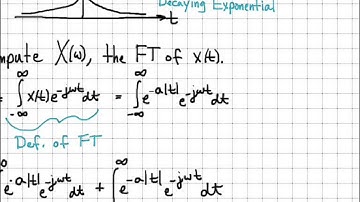 Decaying Exponential
t
mpute X(ω), the FT of x(t).
= ∫_{-∞}^{∞} x(t)e^{-jωt}dt = ∫_{-∞}^{∞} e^{-a|t|}e^{-jωt}dt
Def. of FT
e^{-a|t|}e^{-jωt}dt + ∫^{∞} e^{-a|t|}e^{-jωt}dt